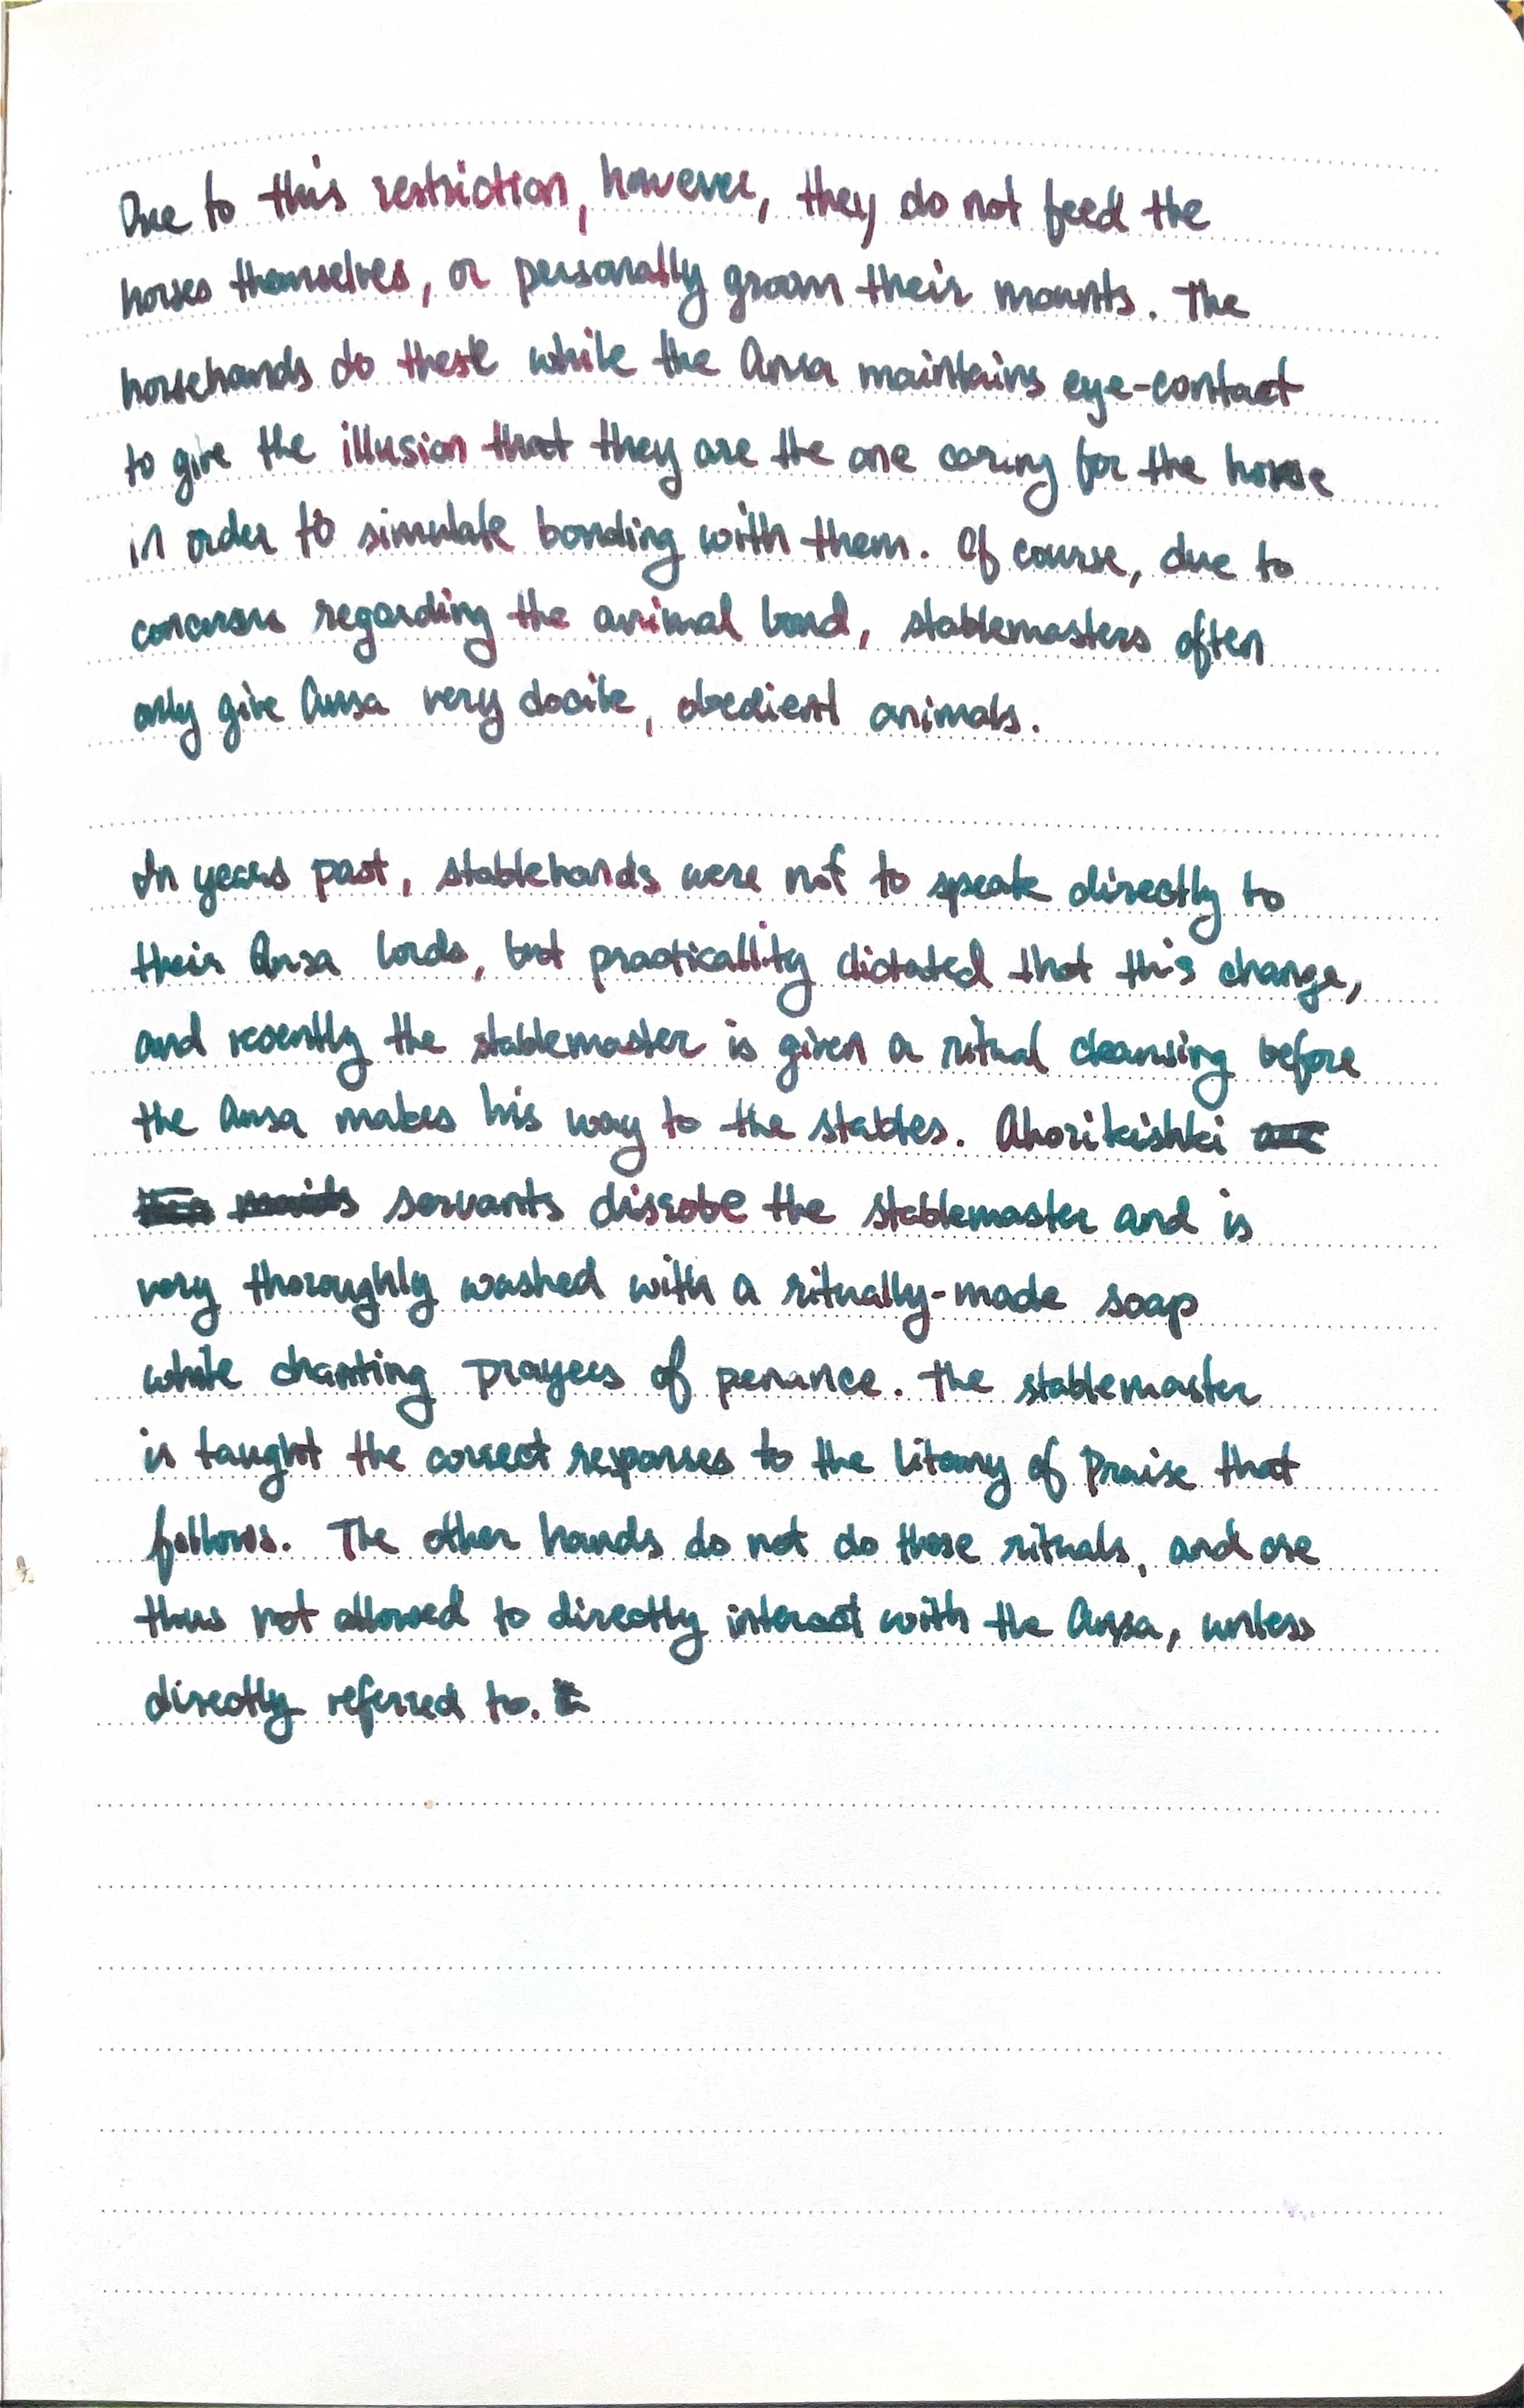 Due to this restriction, however, they do not feed the
horses themselves, or personally groom their mounts. The
horsehands do these while the Ansa maintains eye-contact
to give the illusion that they are the one caring for the horse
in order to simulate bonding with them. Of course, due to
concerns regarding the animal bond, stablemasters often
only give Ansa very docile, obedient animals.

In years past, stablehands were not to speak directly to
their Ansa lords, but practicallity dictated that this change,
and recently the stablemaster is given a ritual cleansing before
the Ansa makes his way to the stables. Ahorikishki
servants disrobe the stablemaster and is
very thoroughly washed with a ritually-made soap
while chanting prayers of penance. The stablemaster
is taught the correct responses to the litany of Praise that
follows. The other hands do not do these rituals, and are
thus not allowed to directly interact with the Ansa, unless
directly referred to.